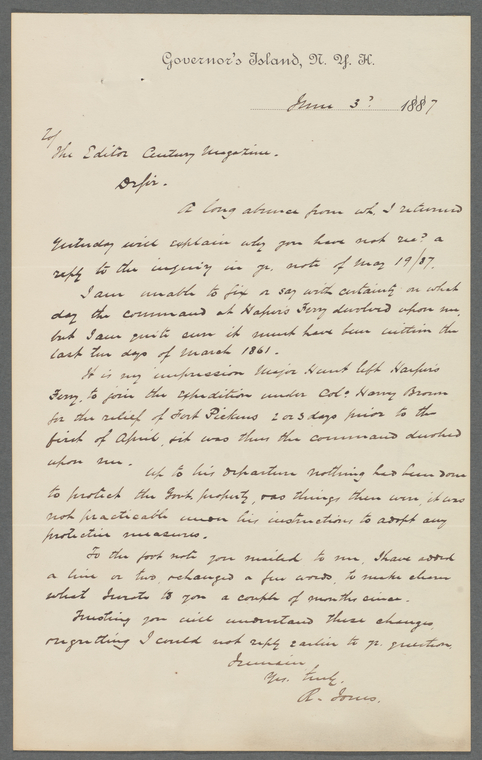 Governor's Island, N. Y. H.
June 3d 1887
To
The Editor Century Magazine.
Dr Sir.
A long absence from wh. I returned
yesterday will explain why you have not recd a
reply to the inquiry in yr. note of May 19/87.
I am unable to fix or say with certainty on what
day the command at Harpers Ferry devolved upon me,
but I am quite sure it must have been within the
last ten days of March 1861.
It is my impression Major Hunt left Harpers
Ferry, to join the expedition under Colo. Harvey Brown
for the relief of Fort Pickens 2 or 3 days prior to the
first of April, & it was thus the command devolved
upon me.
Up to his departure nothing had been done
to protect the Govt property, & as things then were, it was
not practicable under his instructions to adopt any
protective measures.
To the foot note you mailed to me, I have added
a line or two, & changed a few words, to make clear
what I wrote to you a couple of months since.
Trusting you will understand these changes
regretting I could not reply earlier to yr. question,
I remain
Yrs. truly.
R. Jones.